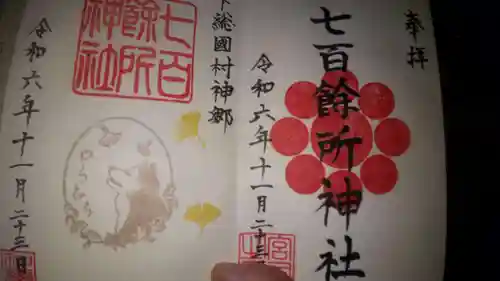 奉拝
七百餘所神社
令和六年十一月二十三
下総國村神郷
七百
餘所
神社
令和六年十一月二十三日